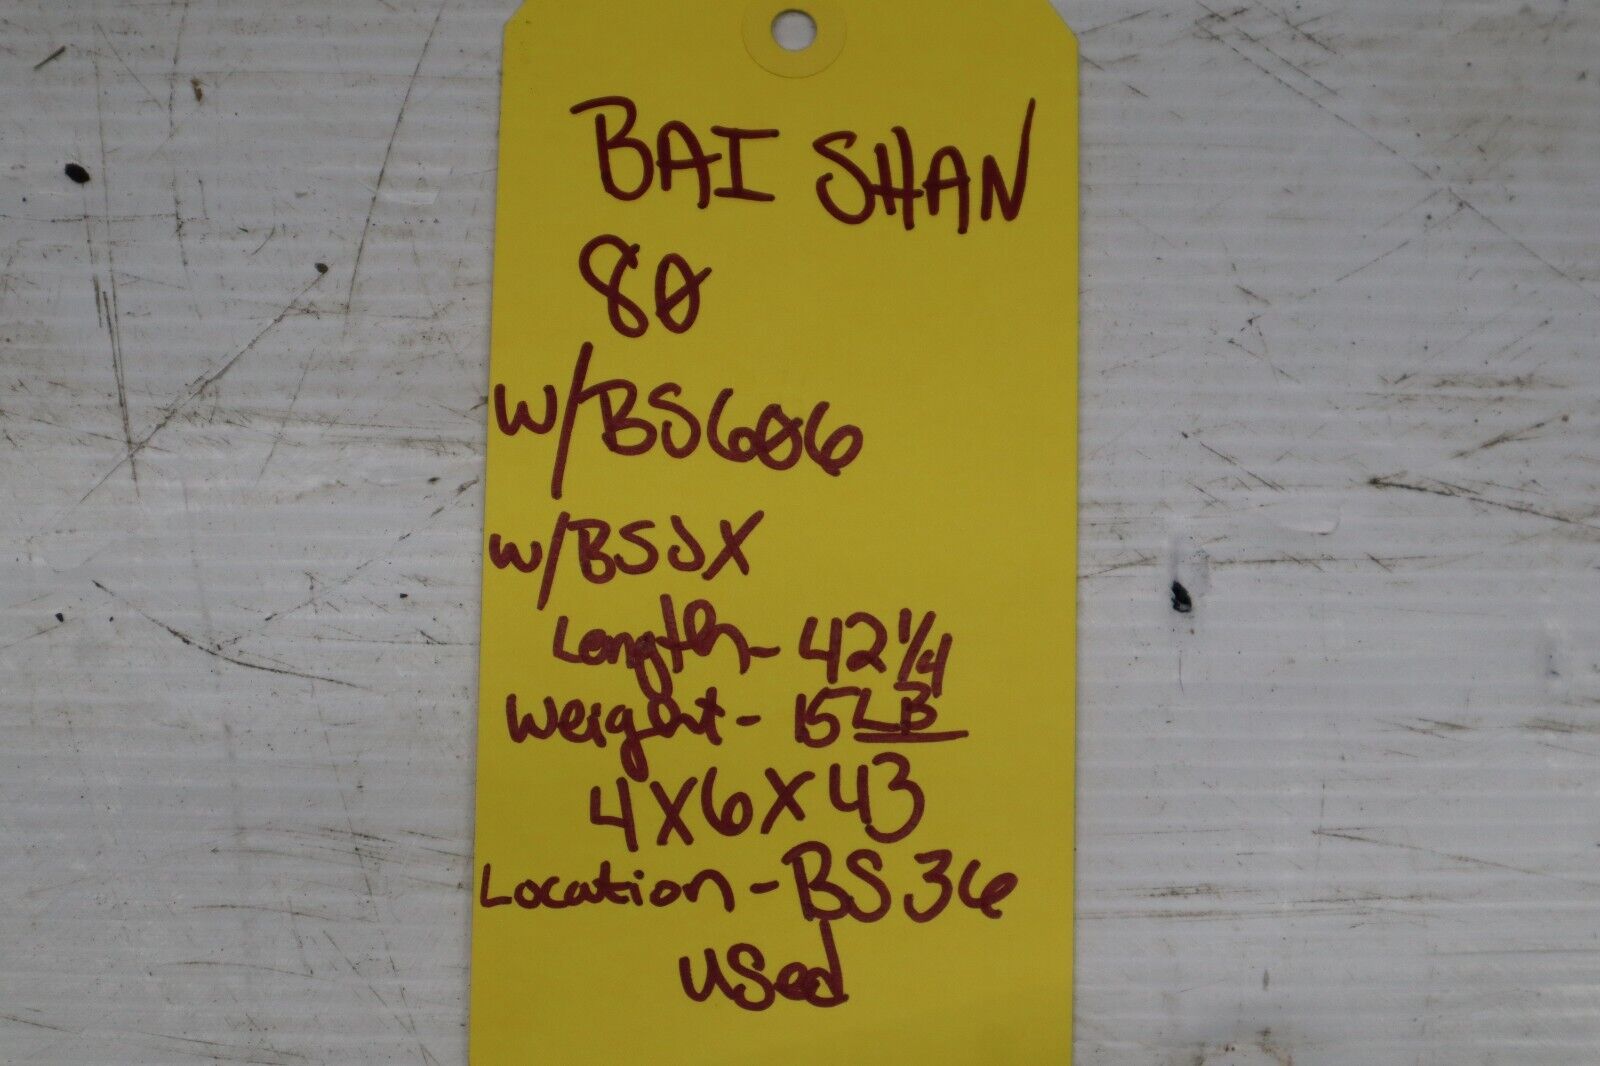 BAI SHAN
80
W/BS606
W/BSJX
Length- 42 1/4
Weight- 15LB
4X6X43
Location-BS36
used